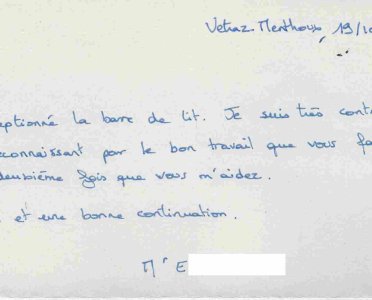 Vetraz-Monthoux, 19/10
eptionné la barre de lit. Je suis très conte
econnaissant pour le bon travail que vous fa
deuxième fois que vous m'aidez.
et une bonne continuation.
Mr E